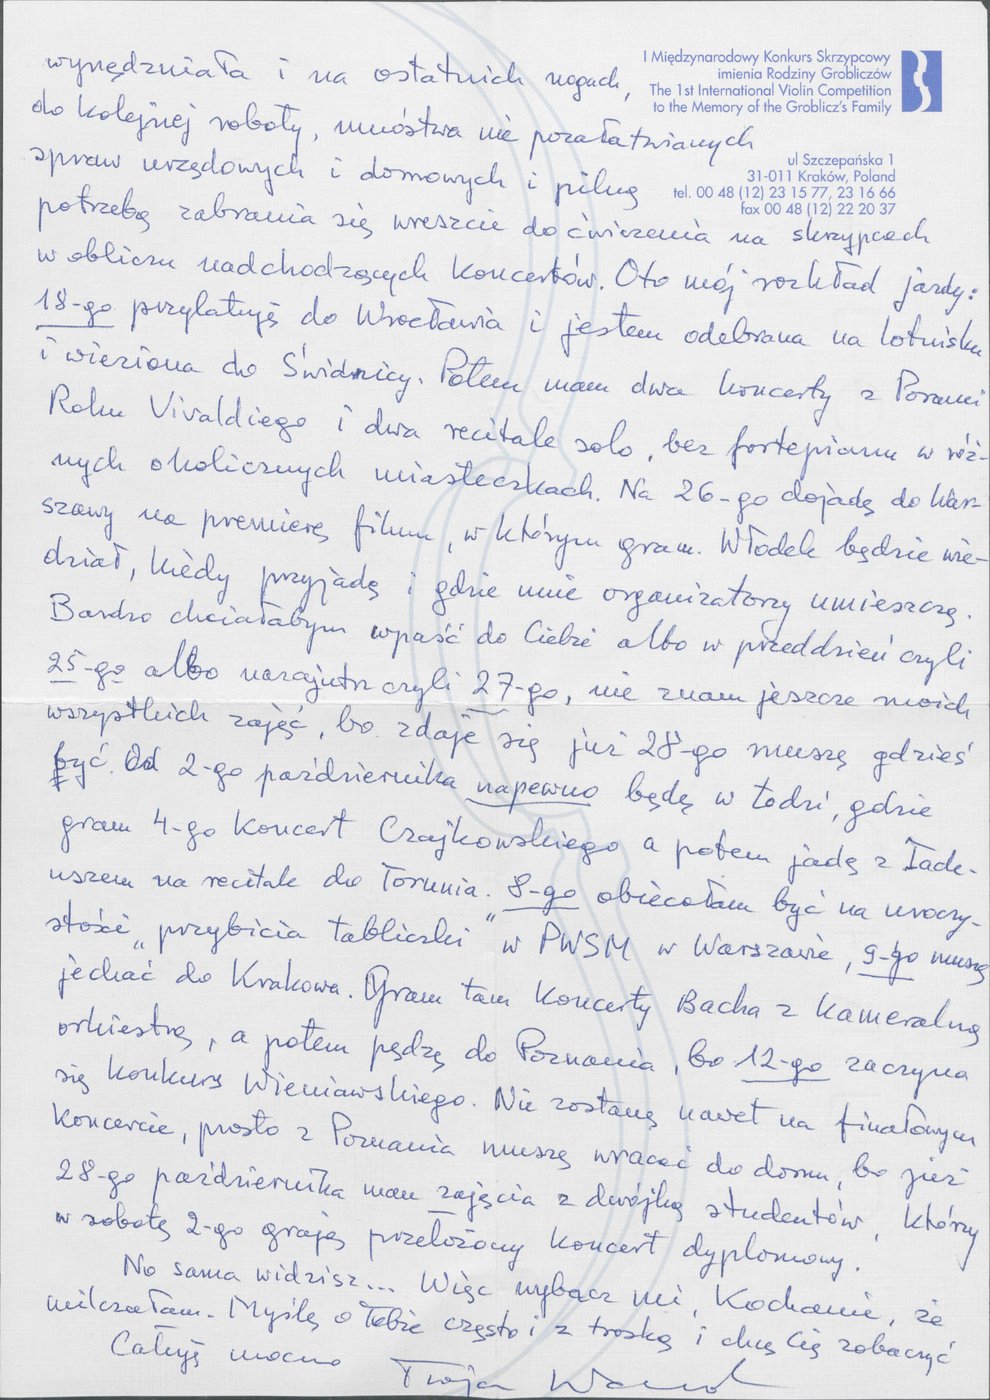 I Międzynarodowy Konkurs Skrzypcowy
imienia Rodziny Grobliczów
The 1st International Violin Competition
to the Memory of the Groblicz's Family
ul Szczepańska 1
31-011 Kraków, Poland
tel. 00 48 (12) 23 15 77, 23 16 66
fax 00 48 (12) 22 20 37
wynędzniała i na ostatnich nogach,
do kolejnej roboty, mnóstwa nie pozałatwianych
spraw urzędowych i domowych i pilną
potrzebą zabrania się wreszcie do ćwiczenia na skrzypcach
w obliczu nadchodzących koncertów. Oto mój rozkład jazdy:
18-go przylatuję do Wrocławia i jestem odebrana na lotnisku
i wieziona do Świdnicy. Potem mam dwa koncerty z Porami
Roku Vivaldiego i dwa recitale solo, bez fortepianu w róż-
nych okolicznych miasteczkach. Na 26-go dojadę do War-
szawy na premierę filmu, w którym gram. Włodek będzie wie-
dział, kiedy przyjadę i gdzie mnie organizatorzy umieszczą.
Bardzo chciałabym wpaść do Ciebie albo w przeddzień czyli
25-go albo nazajutrz czyli 27-go, nie znam jeszcze moich
wszystkich zajęć, bo zdaje się już 28-go muszę gdzieś
być. Od 2-go października napewno będę w Łodzi, gdzie
gram 4-go Koncert Czajkowskiego a potem jadę z Tade-
uszem na recitale do Torunia. 8-go obiecałam być na uroczy-
stości „przybicia tabliczki" w PWSM w Warszawie, 9-go muszę
jechać do Krakowa. Gram tam Koncerty Bacha z kameralną
orkiestrą, a potem pędzę do Poznania, bo 12-go zaczyna
się konkurs Wieniawskiego. Nie zostanę nawet na finałowym
koncercie, prosto z Poznania muszę wracać do domu, bo już
28-go października mam zajęcia z dwójką studentów, którzy
w sobotę 2-go grają przełożony koncert dyplomowy.
No sama widzisz... Więc wybacz mi, Kochanie, że
milczałam. Myślę o Tobie często i z troską i chcę Cię zobaczyć
Całuję mocno
Twoja Wanda